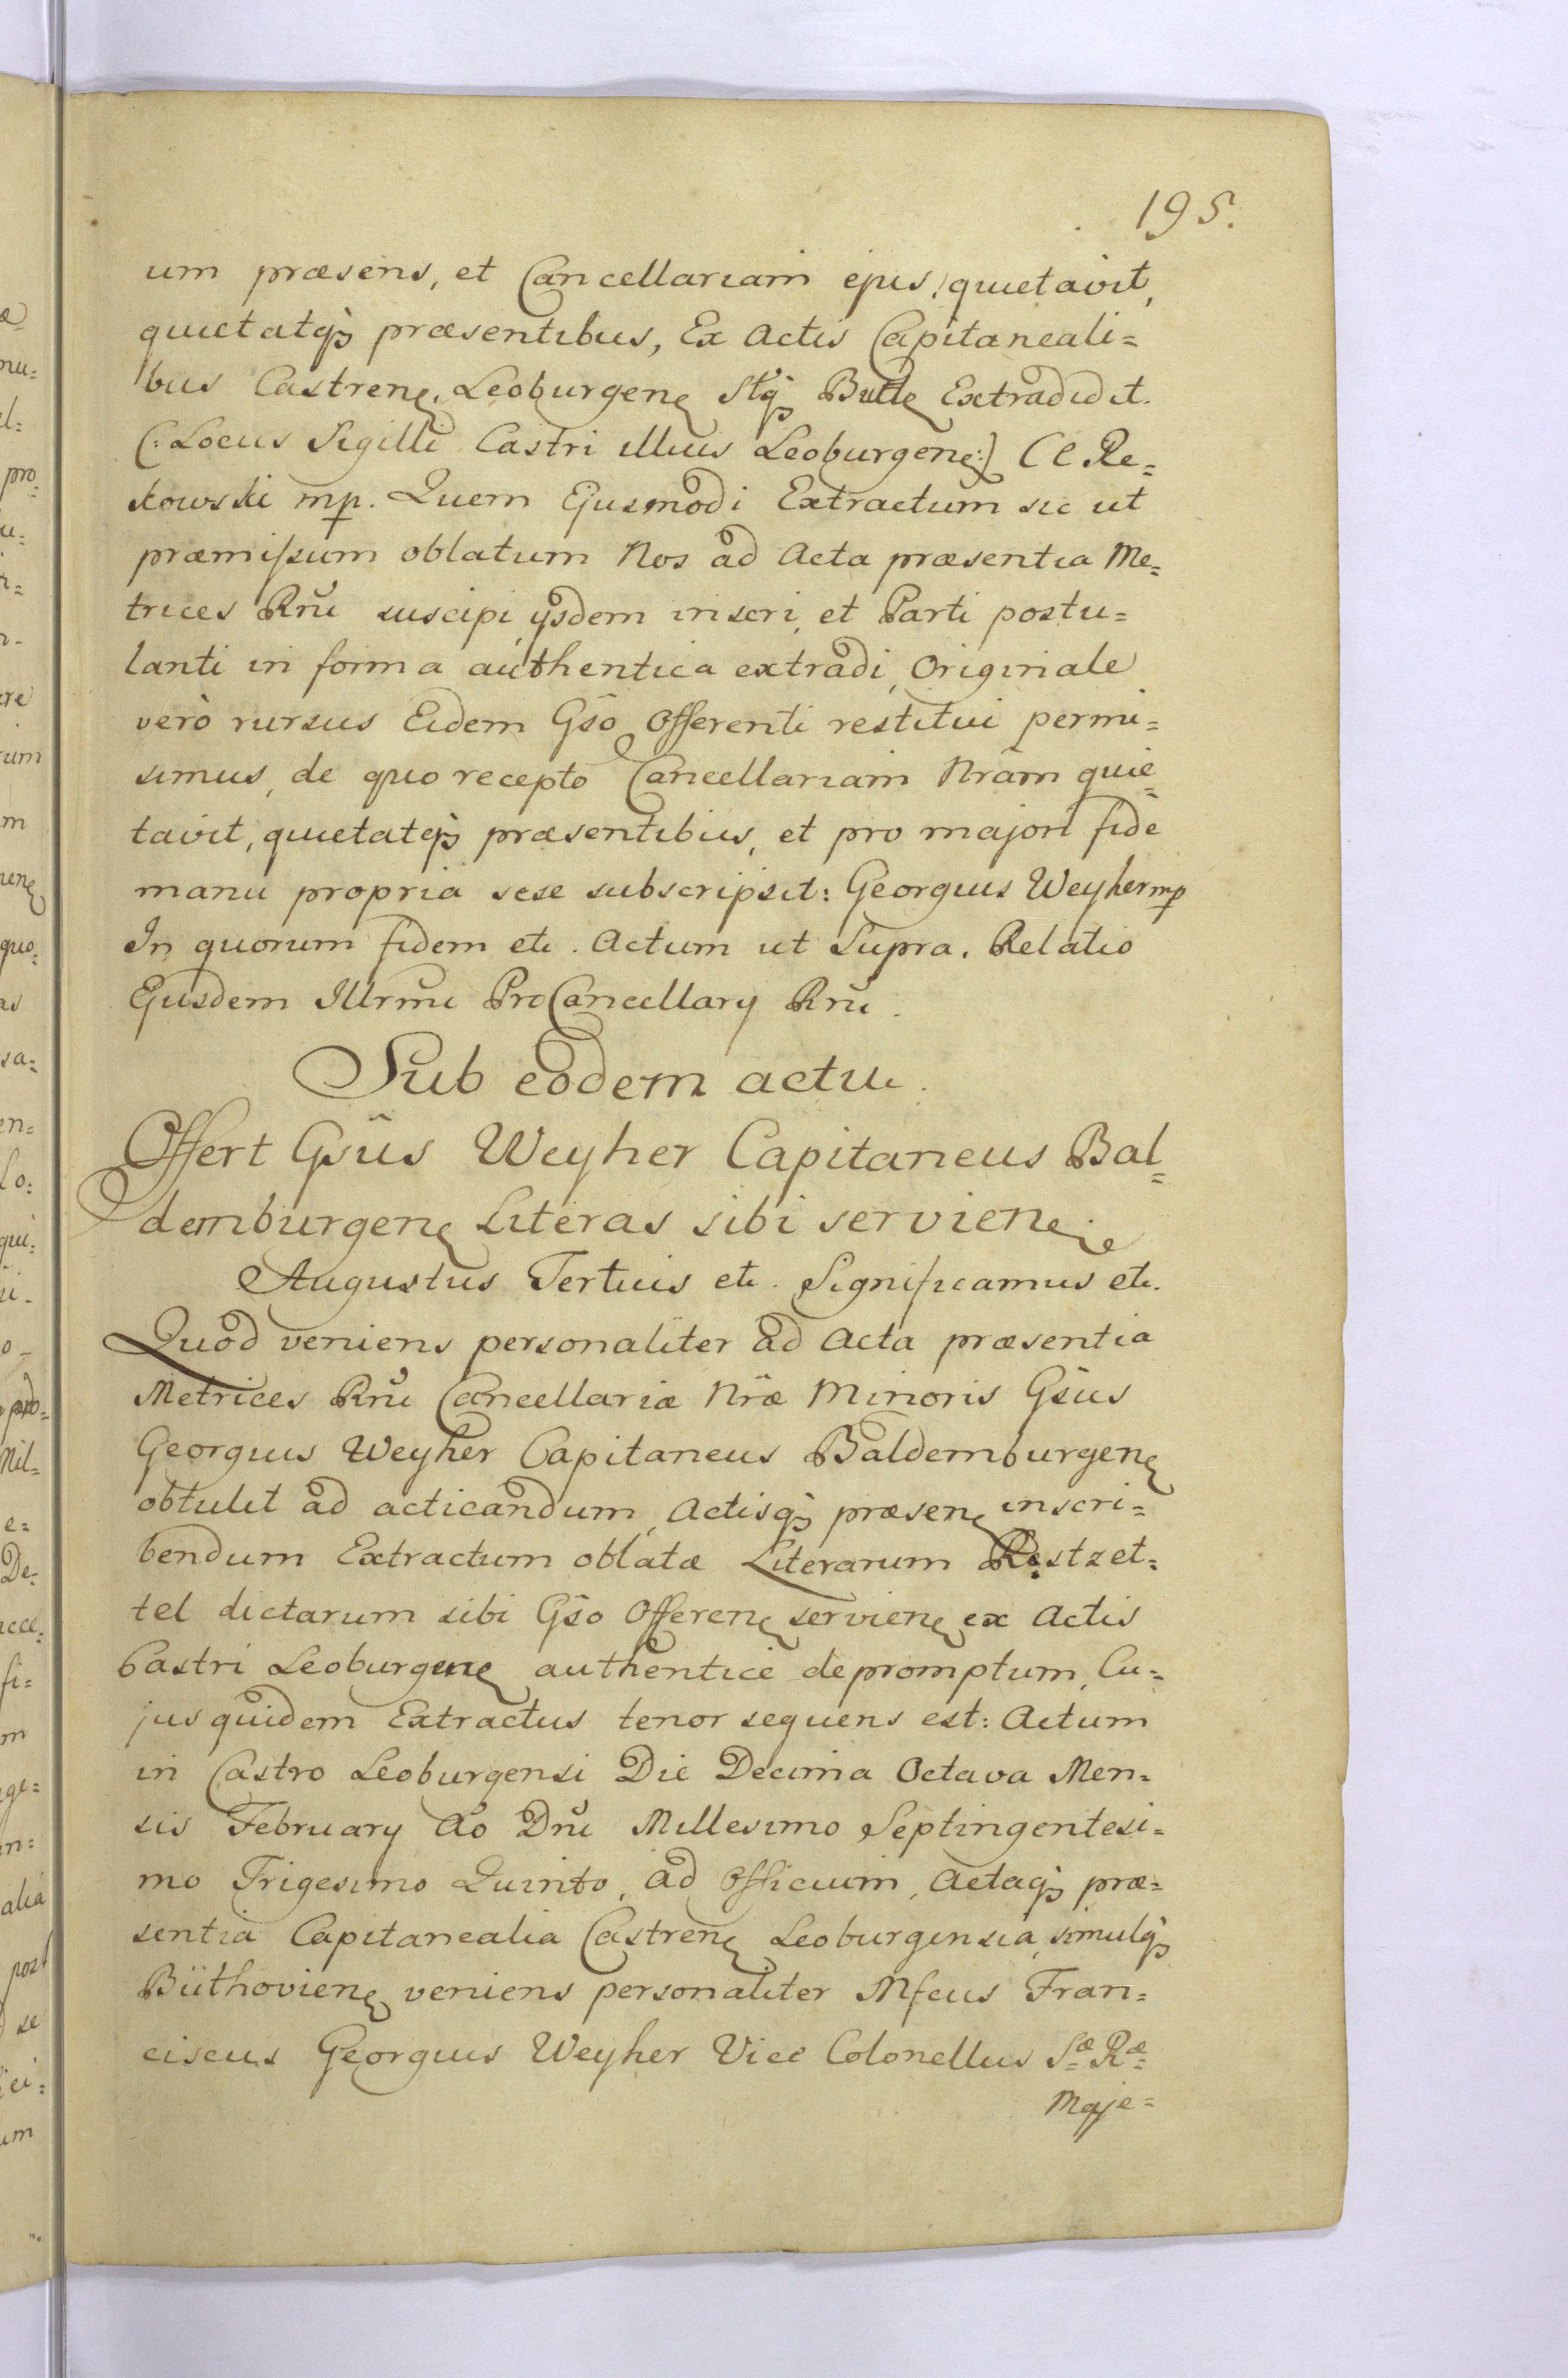 195.
um præsens, et Cancellariam ejus, quietavit,
quietatqȝ præsentibus, Ex Actis Capitaneali=
bus Castrenꝭ. Leoburgenꝭ Stqȝ Buttꝭ Extradidit.
(: Locus Sigilli Castri illius Leoburgenꝭ:) C C Re=
kowski mp. Quem Ejusmodi Extractum sic ut
præmissum oblatum Nos ad Acta præsentia Me=
trices Rñi suscipi, ijsdem inscri, et Parti postu=
lanti in forma authentica extradi, Originale
verò rursus Eidem Gso Offerenti restitui permi=
simus, de quo recepto Cancellariam Nram quie=
tavit, quietatqȝ præsentibus, et pro majori fide
manu propria sese subscripsit: Georgius Weyher mp
In quorum fidem etc. Actum ut Supra. Relatio
Ejusdem Illrmi ProCancellarij Rñi.
Sub eodem actu.
Offert Gsus Weyher Capitaneus Bal=
demburgenꝭ Literas sibi servienꝭ.
Augustus Tertius etc. Significamus etc.
Quod veniens personaliter ad Acta præsentia
Metrices Rñi Cancellariæ Nræ Minoris Gsus
Georgius Weyher Capitaneus Baldemburgenꝭ
obtulit ad acticandum, Actisqȝ præsenꝭ inscri=
bendum Extractum oblatæ Literarum Restzet=
tel dictarum sibi Gso Offerenꝭ servienꝭ ex Actis
Castri Leoburgenꝭ authentice depromptum, Cu=
jus quidem Extractus tenor sequens est: Actum
in Castro Leoburgensi Die Decima Octava Men=
sis February Ao Dni Millesimo Septingentesi=
mo Trigesimo Quinto, ad Officium, Actaqȝ præ=
sentia Capitanealia Castrenꝭ Leoburgensia, simulqȝ
Büthovienꝭ veniens personaliter Mfcus Fran=
ciscus Georgius Weyher Vice Colonellus Sæ Ræ
Maje=